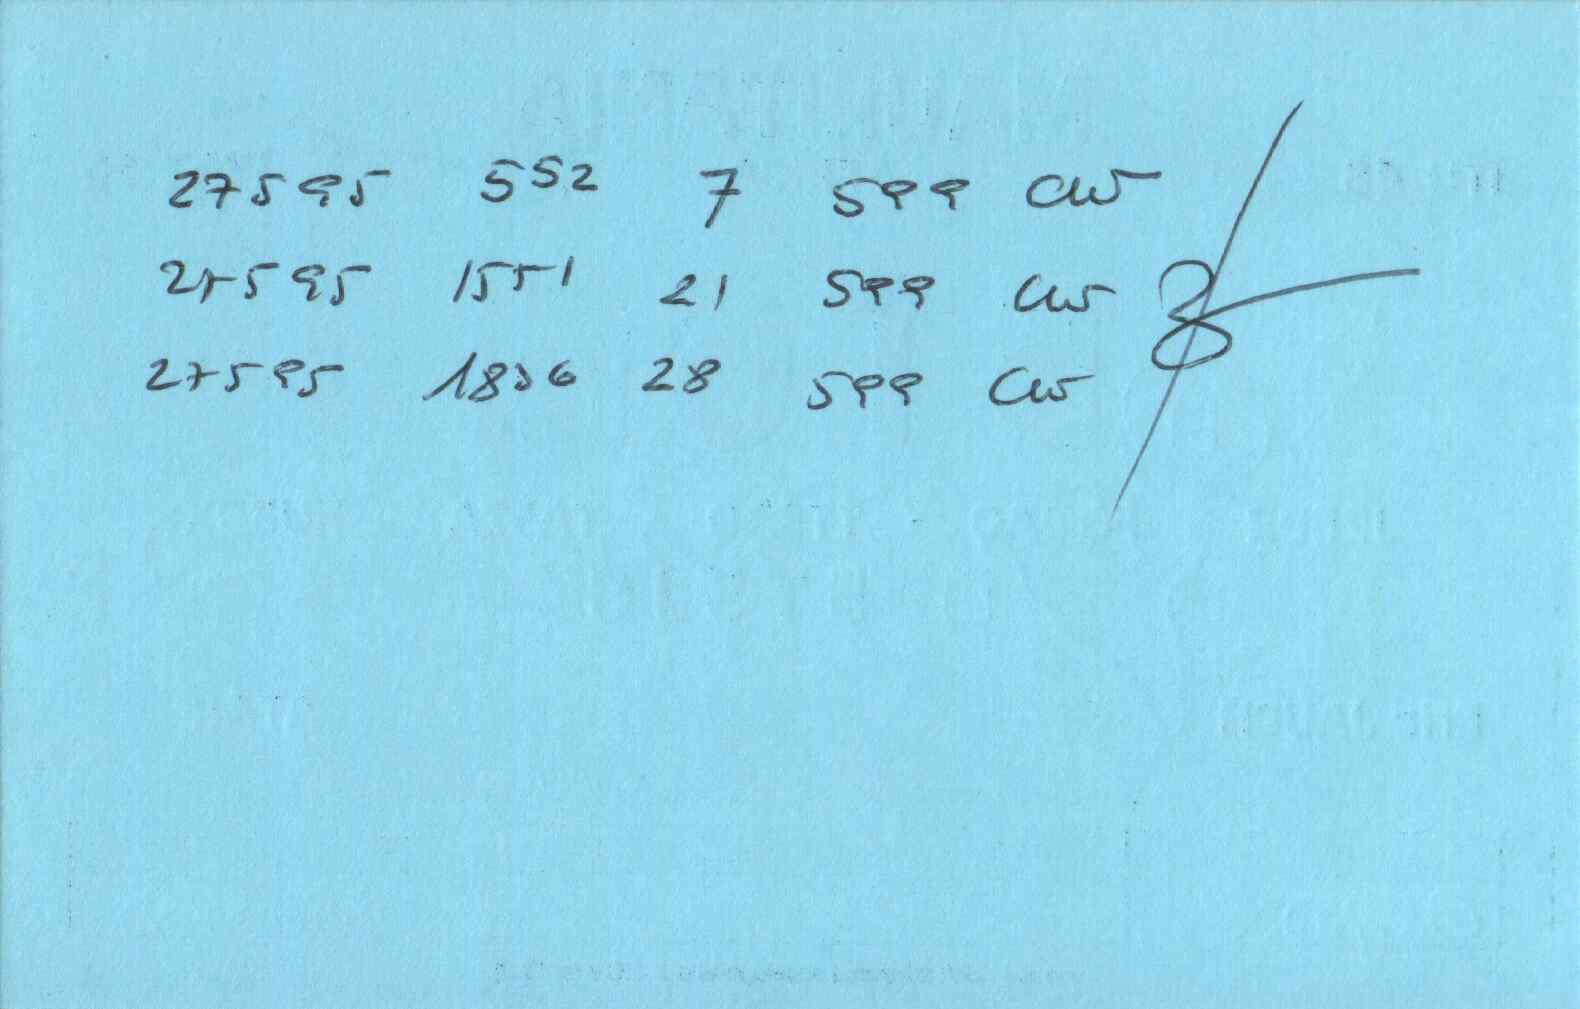 27595 552 7 599 CW
27595 1551 21 599 CW
27595 1836 28 599 CW